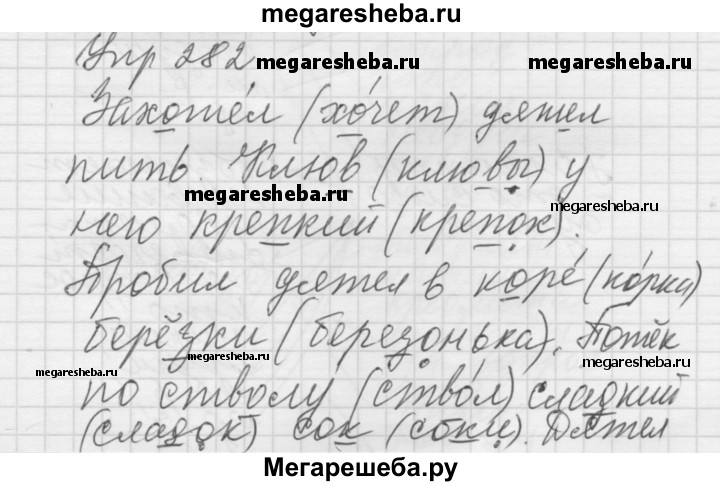 megaresheba.ru
Упр 282
megaresheba.ru megaresheba.ru
Захоте́л (хо́чет) дятел
пить. Клюв (клювы) у
megaresheba.ru
него крепкий (крепок).
megaresheba.ru
Пробил дятел в коре́ (ко́рка)
берёзки (березонька). Потёк
megaresheba.ru megaresheba.ru megaresheba.ru
по стволу (ство́л) сладкий
(сладок) сок (соки). Дятел
Мегарешеба.ру